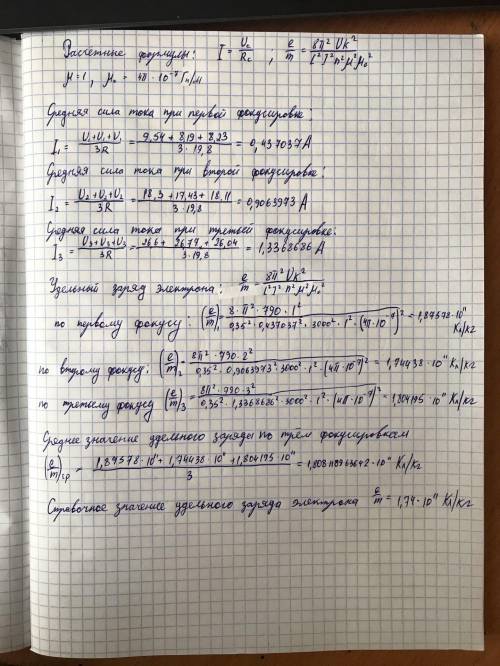 Расчетные формулы: I = Uc/Rc ; e/m = 8π² Uk²/l² I² n² μ² μ₀²
μ = 1 , μ₀ = 4π · 10⁻⁷ Гн/м
Средняя сила тока при первой фокусировке:
I₁ = U₁+U₁+U₁/3R = 9,54 + 8,19 + 8,23/3 · 19,8 = 0,437037 А
Средняя сила тока при второй фокусировке:
I₂ = U₂+U₂+U₂/3R = 18,3 + 17,43 + 18,11/3 · 19,8 = 0,9063973 А
Средняя сила тока при третьей фокусировке:
I₃ = U₃+U₃+U₃/3R = 26,6 + 26,77 + 26,04/3 · 19,8 = 1,3368686 А
Удельный заряд электрона: e/m = 8π² Uk²/l² I² n² μ² μ₀²
по первому фокусу: (e/m)₁ = 8 · π² · 790 · 1²/0,35² · 0,437037² · 3000² · 1² · (4π · 10⁻⁷)² = 1,87578 · 10¹¹ Кл/кг
по второму фокусу: (e/m)₂ = 8π² · 790 · 2²/0,35² · 0,9063973² · 3000² · 1² · (4π · 10⁻⁷)² = 1,74438 · 10¹¹ Кл/кг
по третьему фокусу (e/m)₃ = 8π² · 790 · 3²/0,35² · 1,3368686² · 3000² · 1² · (4π · 10⁻⁷)² = 1,804195 · 10¹¹ Кл/кг
Среднее значение удельного заряда по трём фокусировкам
(e/m)ср = 1,87578 · 10¹¹ + 1,74438 · 10¹¹ + 1,804195 · 10¹¹/3 = · 10¹¹ Кл/кг
Справочное значение удельного заряда электрона e/m = 1,74 · 10¹¹ Кл/кг